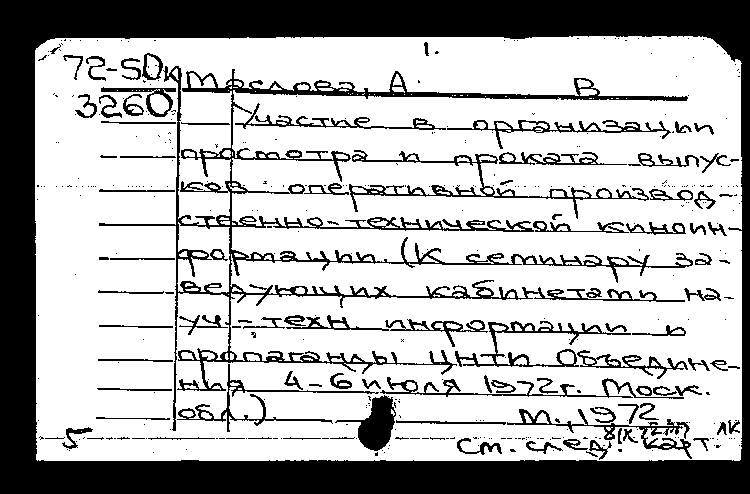 1.
72-50к Маслова, А. В
3260
Участие в организации
просмотра и проката выпус-
ков оперативной производ-
ственно-технической киноин-
формации. (К семинару за-
ведующих кабинетами на-
уч.-техн. информации и
пропаганды ЦНТИ Объедине-
ния 4-6 июля 1972г. Моск.
обл.) М., 1972.
5 см. след. карт. ЛК